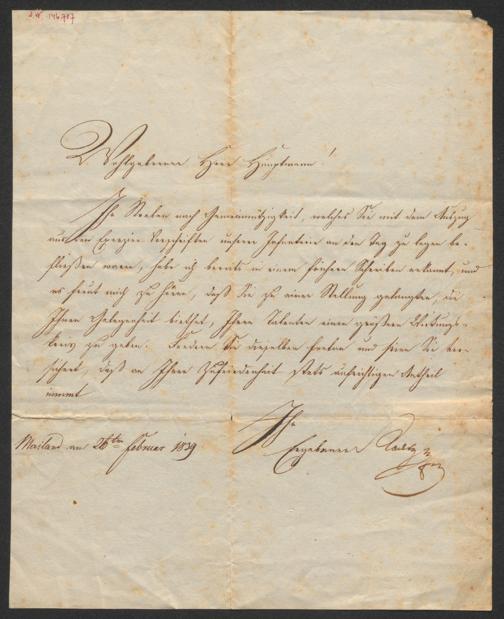 I.N. 146.707
Wohlgeborner Herr Hauptmann!
Ihr Streben nach Gemeinnützigkeit, welches Sie mit dem Auszug
aus den Exerzier Vorschriften unserer Infanterie an den Tag zu legen be-
fließen waren, habe ich bereits in einem frühern Schreiben erkannt, und
es freut mich zu hören, daß Sie zu einer Stellung gelangten, die
Ihnen Gelegenheit biethet, Ihren Talenten einen größern Wirkungs-
kreis zu geben. Fordern Sie denselben fortan und seien Sie ver-
sichert, daß an Ihrer Zufriedenheit stets aufrichtigen Antheil
nimmt
Mailand am 26ten Februar 1839
Ihr
Ergebener Radetzky